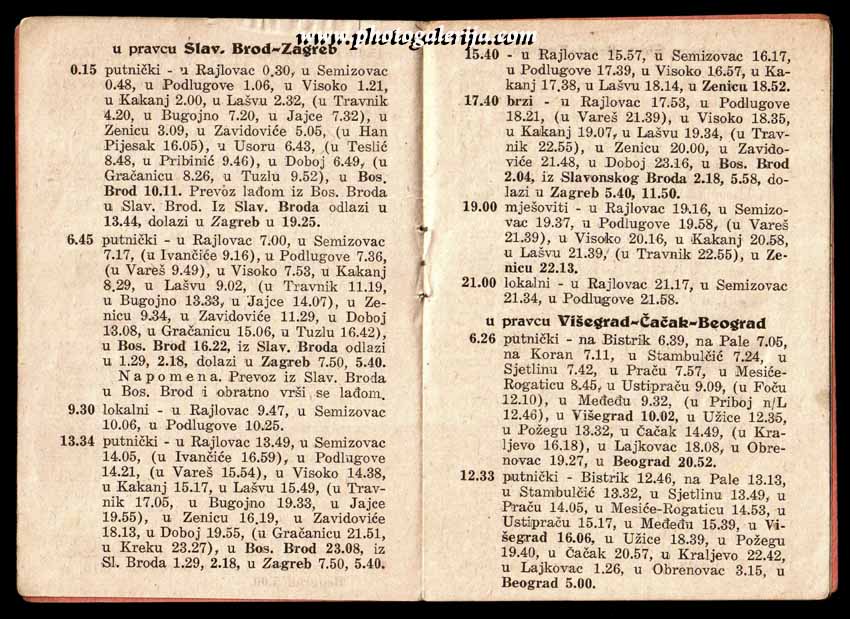 www.photogalerija.com
u pravcu Slav. Brod-Zagreb
0.15 putnički - u Rajlovac 0,30, u Semizovac
0.48, u Podlugove 1.06, u Visoko 1.21,
u Kakanj 2.00, u Lašvu 2.32, (u Travnik
4.20, u Bugojno 7.20, u Jajce 7.32), u
Zenicu 3.09, u Zavidoviće 5.05, (u Han
Pijesak 16.05), u Usoru 6.43, (u Teslić
8.48, u Pribinić 9.46), u Doboj 6.49, (u
Gračanicu 8.26, u Tuzlu 9.52), u Bos.
Brod 10.11. Prevoz lađom iz Bos. Broda
u Slav. Brod. Iz Slav. Broda odlazi u
13.44, dolazi u Zagreb u 19.25.
6.45 putnički - u Rajlovac 7.00, u Semizovac
7.17, (u Ivančiće 9.16), u Podlugove 7.36,
(u Vareš 9.49), u Visoko 7.53, u Kakanj
8.29, u Lašvu 9.02, (u Travnik 11.19,
u Bugojno 13.33, u Jajce 14.07), u Ze-
nicu 9.34, u Zavidoviće 11.29, u Doboj
13.08, u Gračanicu 15.06, u Tuzlu 16.42),
u Bos. Brod 16.22, iz Slav. Broda odlazi
u 1.29, 2.18, dolazi u Zagreb 7.50, 5.40.
Napomena. Prevoz iz Slav. Broda
u Bos. Brod i obratno vrši se lađom.
9.30 lokalni - u Rajlovac 9.47, u Semizovac
10.06, u Podlugove 10.25.
13.34 putnički - u Rajlovac 13.49, u Semizovac
14.05, (u Ivančiće 16.59), u Podlugove
14.21, (u Vareš 15.54), u Visoko 14.38,
u Kakanj 15.17, u Lašvu 15.49, (u Trav-
nik 17.05, u Bugojno 19.33, u Jajce
19.55), u Zenicu 16.19, u Zavidoviće
18.13, u Doboj 19.55, (u Gračanicu 21.51,
u Kreku 23.27), u Bos. Brod 23.08, iz
Sl. Broda 1.29, 2.18, u Zagreb 7.50, 5.40.
15.40 - u Rajlovac 15.57, u Semizovac 16.17,
u Podlugove 17.39, u Visoko 16.57, u Ka-
kanj 17,38, u Lašvu 18.14, u Zenicu 18.52.
17.40 brzi - u Rajlovac 17.53, u Podlugove
18.21, (u Vareš 21.39), u Visoko 18.35,
u Kakanj 19.07, u Lašvu 19.34, (u Trav-
nik 22.55), u Zenicu 20.00, u Zavido-
viće 21.48, u Doboj 23.16, u Bos. Brod
2.04, iz Slavonskog Broda 2.18, 5.58, do-
lazi u Zagreb 5.40, 11.50.
19.00 mješoviti - u Rajlovac 19.16, u Semizo-
vac 19.37, u Podlugove 19.58, (u Vareš
21.39), u Visoko 20.16, u Kakanj 20.58,
u Lašvu 21.39, (u Travnik 22.55), u Ze-
nicu 22.13.
21.00 lokalni - u Rajlovac 21.17, u Semizovac
21.34, u Podlugove 21.58.
u pravcu Višegrad-Čačak-Beograd
6.26 putnički - na Bistrik 6.39, na Pale 7.05,
na Koran 7.11, u Stambulčić 7.24, u
Sjetlinu 7.42, u Praču 7.57, u Mesiće-
Rogaticu 8.45, u Ustipraču 9.09, (u Foču
12.10), u Međeđu 9.32, (u Priboj n/L
12.46), u Višegrad 10.02, u Užice 12.35,
u Požegu 13.32, u Čačak 14.49, (u Kra-
ljevo 16.18), u Lajkovac 18.08, u Obre-
novac 19.27, u Beograd 20.52.
12.33 putnički - Bistrik 12.46, na Pale 13.13,
u Stambulčić 13.32, u Sjetlinu 13.49, u
Praču 14.05, u Mesiće-Rogaticu 14.53, u
Ustipraču 15.17, u Međeđu 15.39, u Vi-
šegrad 16.06, u Užice 18.39, u Požegu
19.40, u Čačak 20.57, u Kraljevo 22.42,
u Lajkovac 1.26, u Obrenovac 3.15, u
Beograd 5.00.